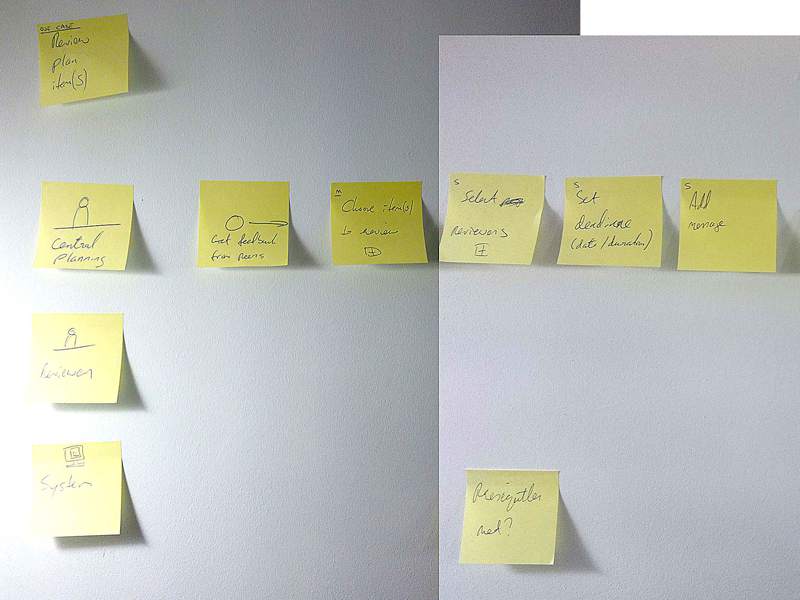 USE CASE
Review
plan
item(s)
Central
Planning
Get feedback
from peers
M
Choose item(s)
to review
S
Select
Reviewers
S
Set
deadline
(date / duration)
S
Add
message
Reviewer
System
met?